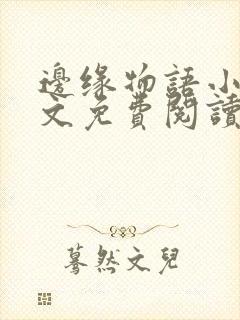 邊緣物語小
文免費閱讀
驀然文兒